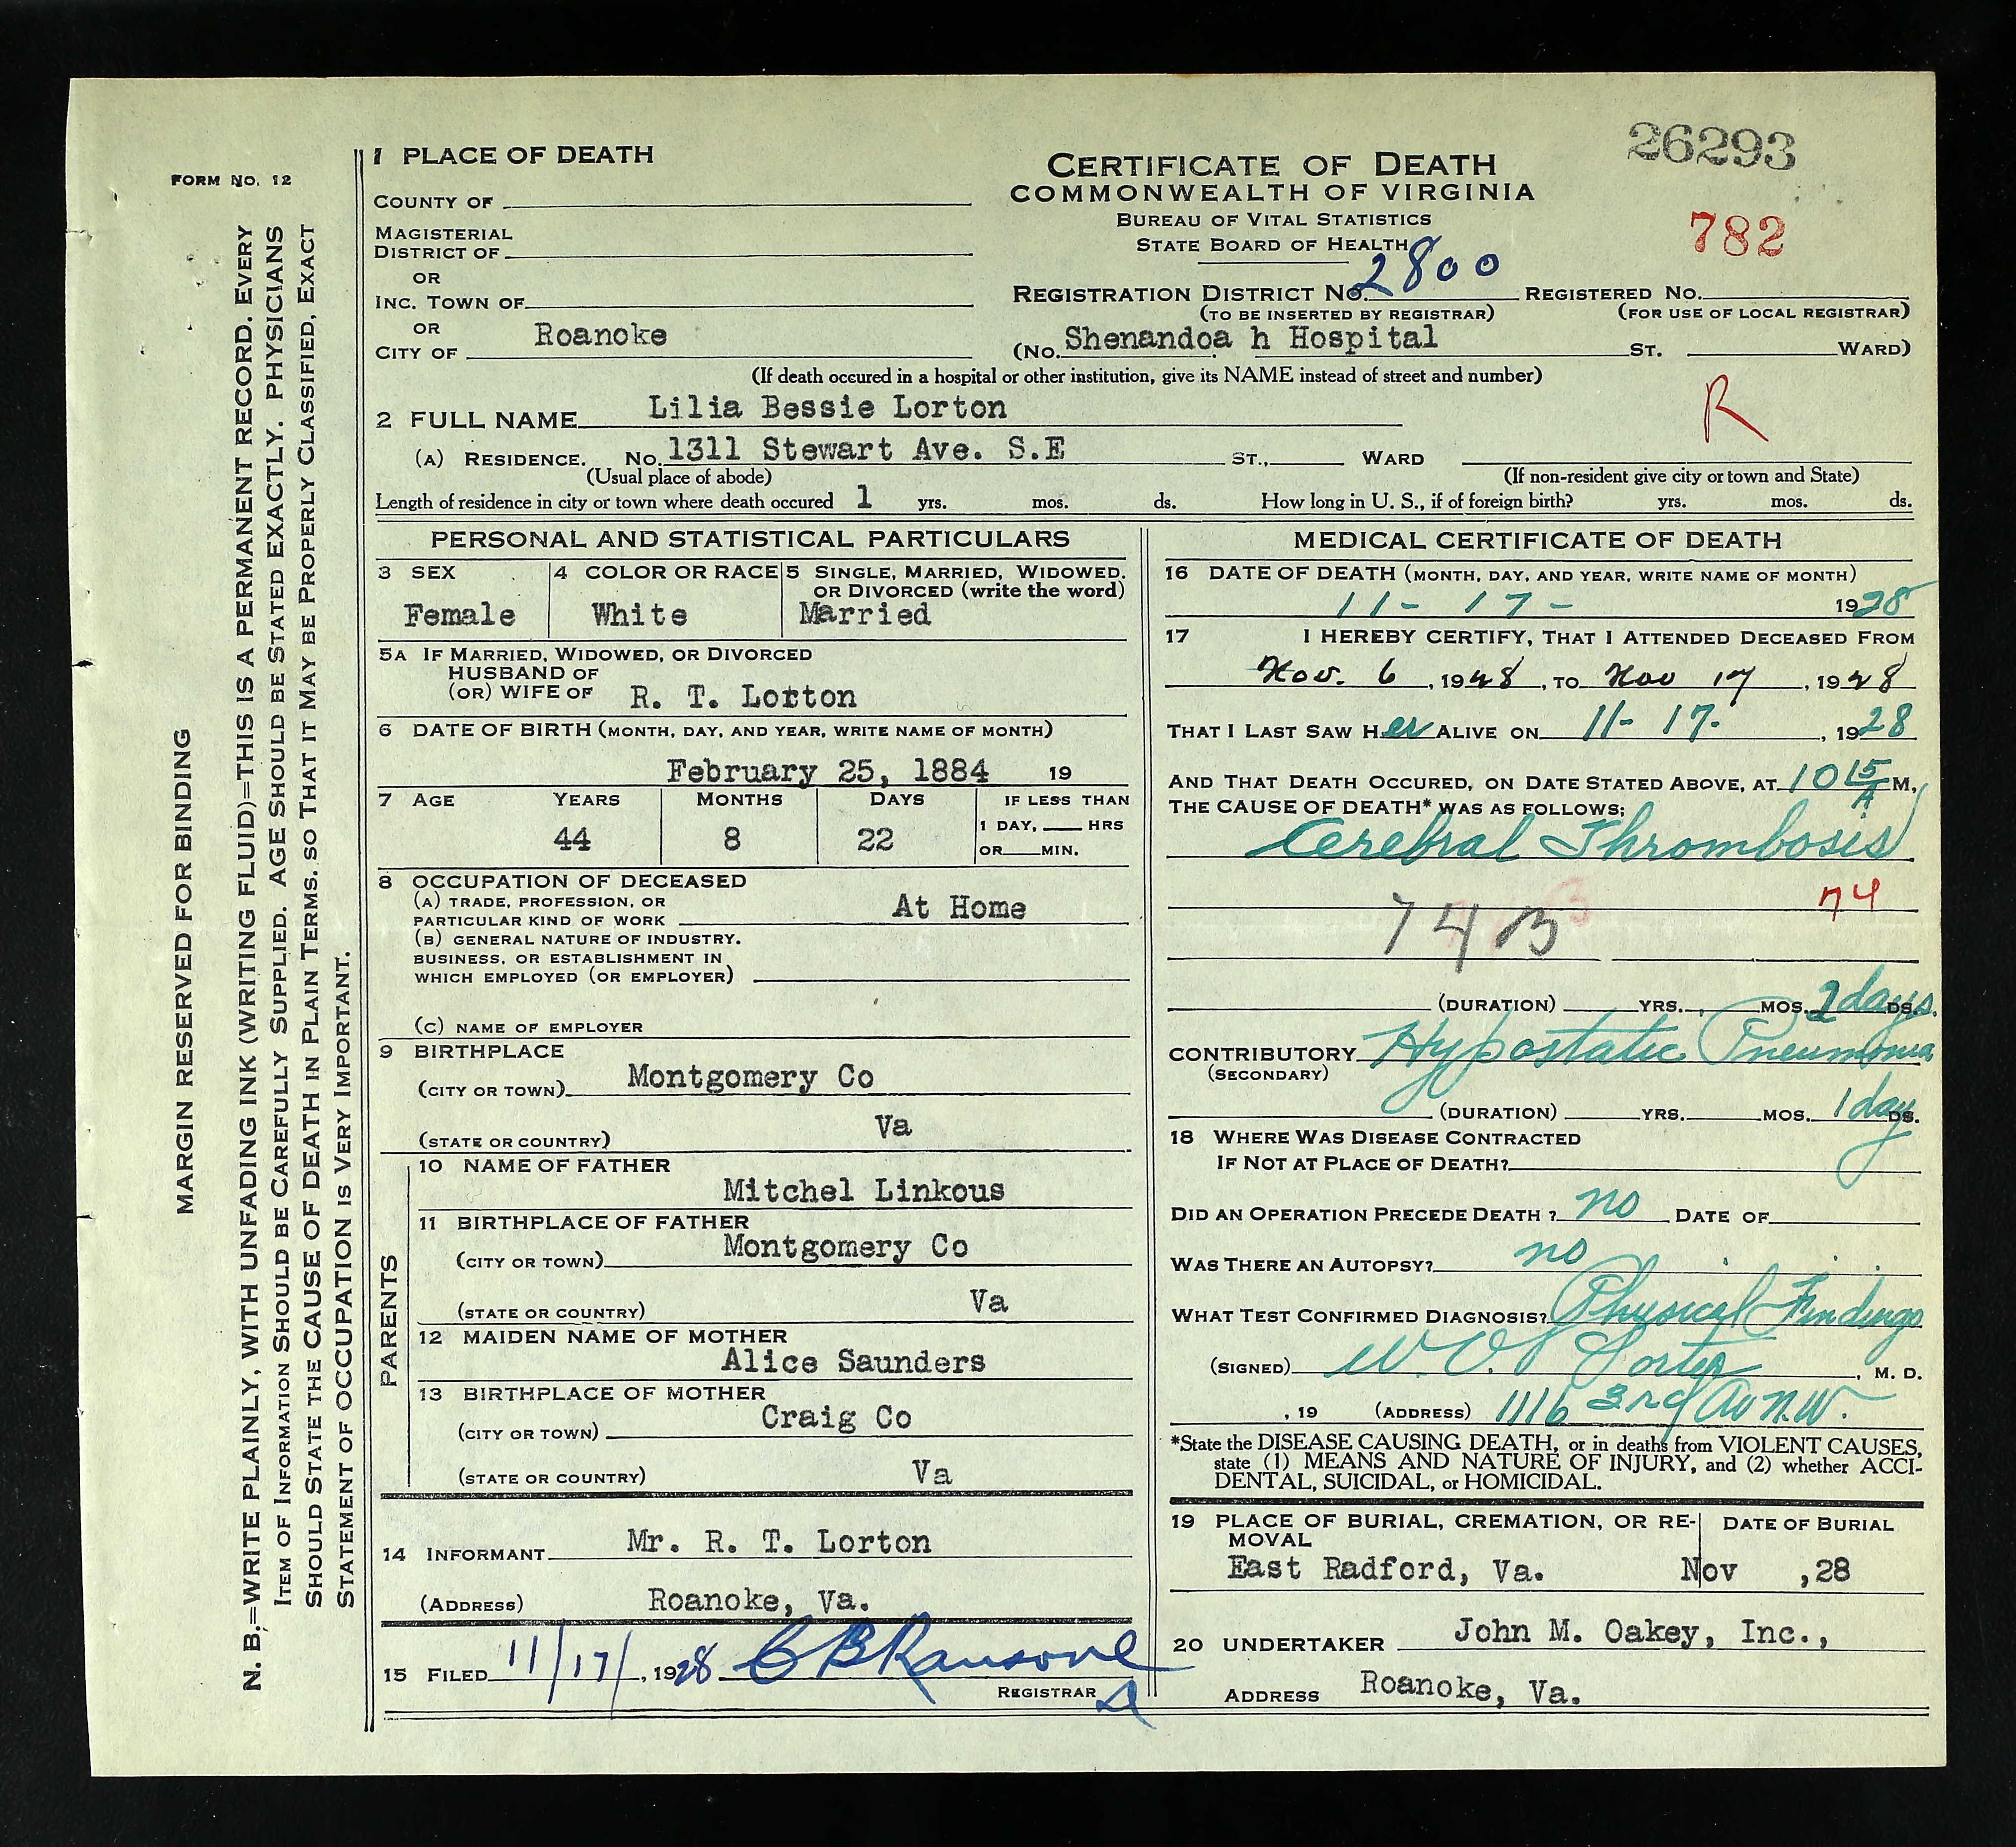 26293
782
FORM NO. 12
MARGIN RESERVED FOR BINDING
N. B.=WRITE PLAINLY, WITH UNFADING INK (WRITING FLUID)=THIS IS A PERMANENT RECORD. EVERY
ITEM OF INFORMATION SHOULD BE CAREFULLY SUPPLIED. AGE SHOULD BE STATED EXACTLY. PHYSICIANS
SHOULD STATE THE CAUSE OF DEATH IN PLAIN TERMS. SO THAT IT MAY BE PROPERLY CLASSIFIED, EXACT
STATEMENT OF OCCUPATION IS VERY IMPORTANT.
1 PLACE OF DEATH
COUNTY OF
MAGISTERIAL
DISTRICT OF
OR
INC. TOWN OF
OR
CITY OF Roanoke
CERTIFICATE OF DEATH
COMMONWEALTH OF VIRGINIA
BUREAU OF VITAL STATISTICS
STATE BOARD OF HEALTH
REGISTRATION DISTRICT NO. 2800 REGISTERED NO.
(TO BE INSERTED BY REGISTRAR) (FOR USE OF LOCAL REGISTRAR)
(NO. Shenandoa h Hospital ST. WARD)
(If death occured in a hospital or other institution, give its NAME instead of street and number)
R
2 FULL NAME Lilia Bessie Lorton
(A) RESIDENCE. NO. 1311 Stewart Ave. S.E ST., WARD
(Usual place of abode) (If non-resident give city or town and State)
Length of residence in city or town where death occured 1 yrs. mos. ds. How long in U. S., if of foreign birth? yrs. mos. ds.
PERSONAL AND STATISTICAL PARTICULARS
3 SEX
Female
4 COLOR OR RACE
White
5 SINGLE, MARRIED, WIDOWED,
OR DIVORCED (write the word)
Married
5A IF MARRIED, WIDOWED, OR DIVORCED
HUSBAND OF
(OR) WIFE OF R. T. Lorton
6 DATE OF BIRTH (MONTH, DAY, AND YEAR, WRITE NAME OF MONTH)
February 25, 1884 19
7 AGE YEARS MONTHS DAYS IF LESS THAN
1 DAY, HRS
44 8 22
OR MIN.
8 OCCUPATION OF DECEASED
(A) TRADE, PROFESSION, OR
PARTICULAR KIND OF WORK At Home
(B) GENERAL NATURE OF INDUSTRY.
BUSINESS, OR ESTABLISHMENT IN
WHICH EMPLOYED (OR EMPLOYER)
(C) NAME OF EMPLOYER
9 BIRTHPLACE
(CITY OR TOWN) Montgomery Co
(STATE OR COUNTRY) Va
PARENTS
10 NAME OF FATHER
Mitchel Linkous
11 BIRTHPLACE OF FATHER
(CITY OR TOWN) Montgomery Co
(STATE OR COUNTRY) Va
12 MAIDEN NAME OF MOTHER
Alice Saunders
13 BIRTHPLACE OF MOTHER
(CITY OR TOWN) Craig Co
(STATE OR COUNTRY) Va
14 INFORMANT Mr. R. T. Lorton
(ADDRESS) Roanoke, Va.
15 FILED 11/17/, 1928 C B Ransone
REGISTRAR
MEDICAL CERTIFICATE OF DEATH
16 DATE OF DEATH (MONTH, DAY, AND YEAR, WRITE NAME OF MONTH)
11- 17- 1928
17 I HEREBY CERTIFY, THAT I ATTENDED DECEASED FROM
Nov. 6, 1928, TO Nov 17, 1928
THAT I LAST SAW Her ALIVE ON 11- 17-, 1928
AND THAT DEATH OCCURED, ON DATE STATED ABOVE, AT 10 15 A M,
THE CAUSE OF DEATH* WAS AS FOLLOWS:
Cerebral Thrombosis
74
74 B
(DURATION) YRS. MOS. 2 days. DS.
CONTRIBUTORY Hypostatic Pneumonia
(SECONDARY)
(DURATION) YRS. MOS. 1 day DS.
18 WHERE WAS DISEASE CONTRACTED
IF NOT AT PLACE OF DEATH?
DID AN OPERATION PRECEDE DEATH ? no DATE OF
WAS THERE AN AUTOPSY? no
WHAT TEST CONFIRMED DIAGNOSIS? Physical Findings
(SIGNED) Porter, M. D.
, 19 (ADDRESS) 1116 3rd Av N.W.
*State the DISEASE CAUSING DEATH, or in deaths from VIOLENT CAUSES,
state (1) MEANS AND NATURE OF INJURY, and (2) whether ACCI-
DENTAL, SUICIDAL, or HOMICIDAL.
19 PLACE OF BURIAL, CREMATION, OR RE-
MOVAL
DATE OF BURIAL
East Radford, Va. Nov ,28
20 UNDERTAKER John M. Oakey, Inc.,
ADDRESS Roanoke, Va.